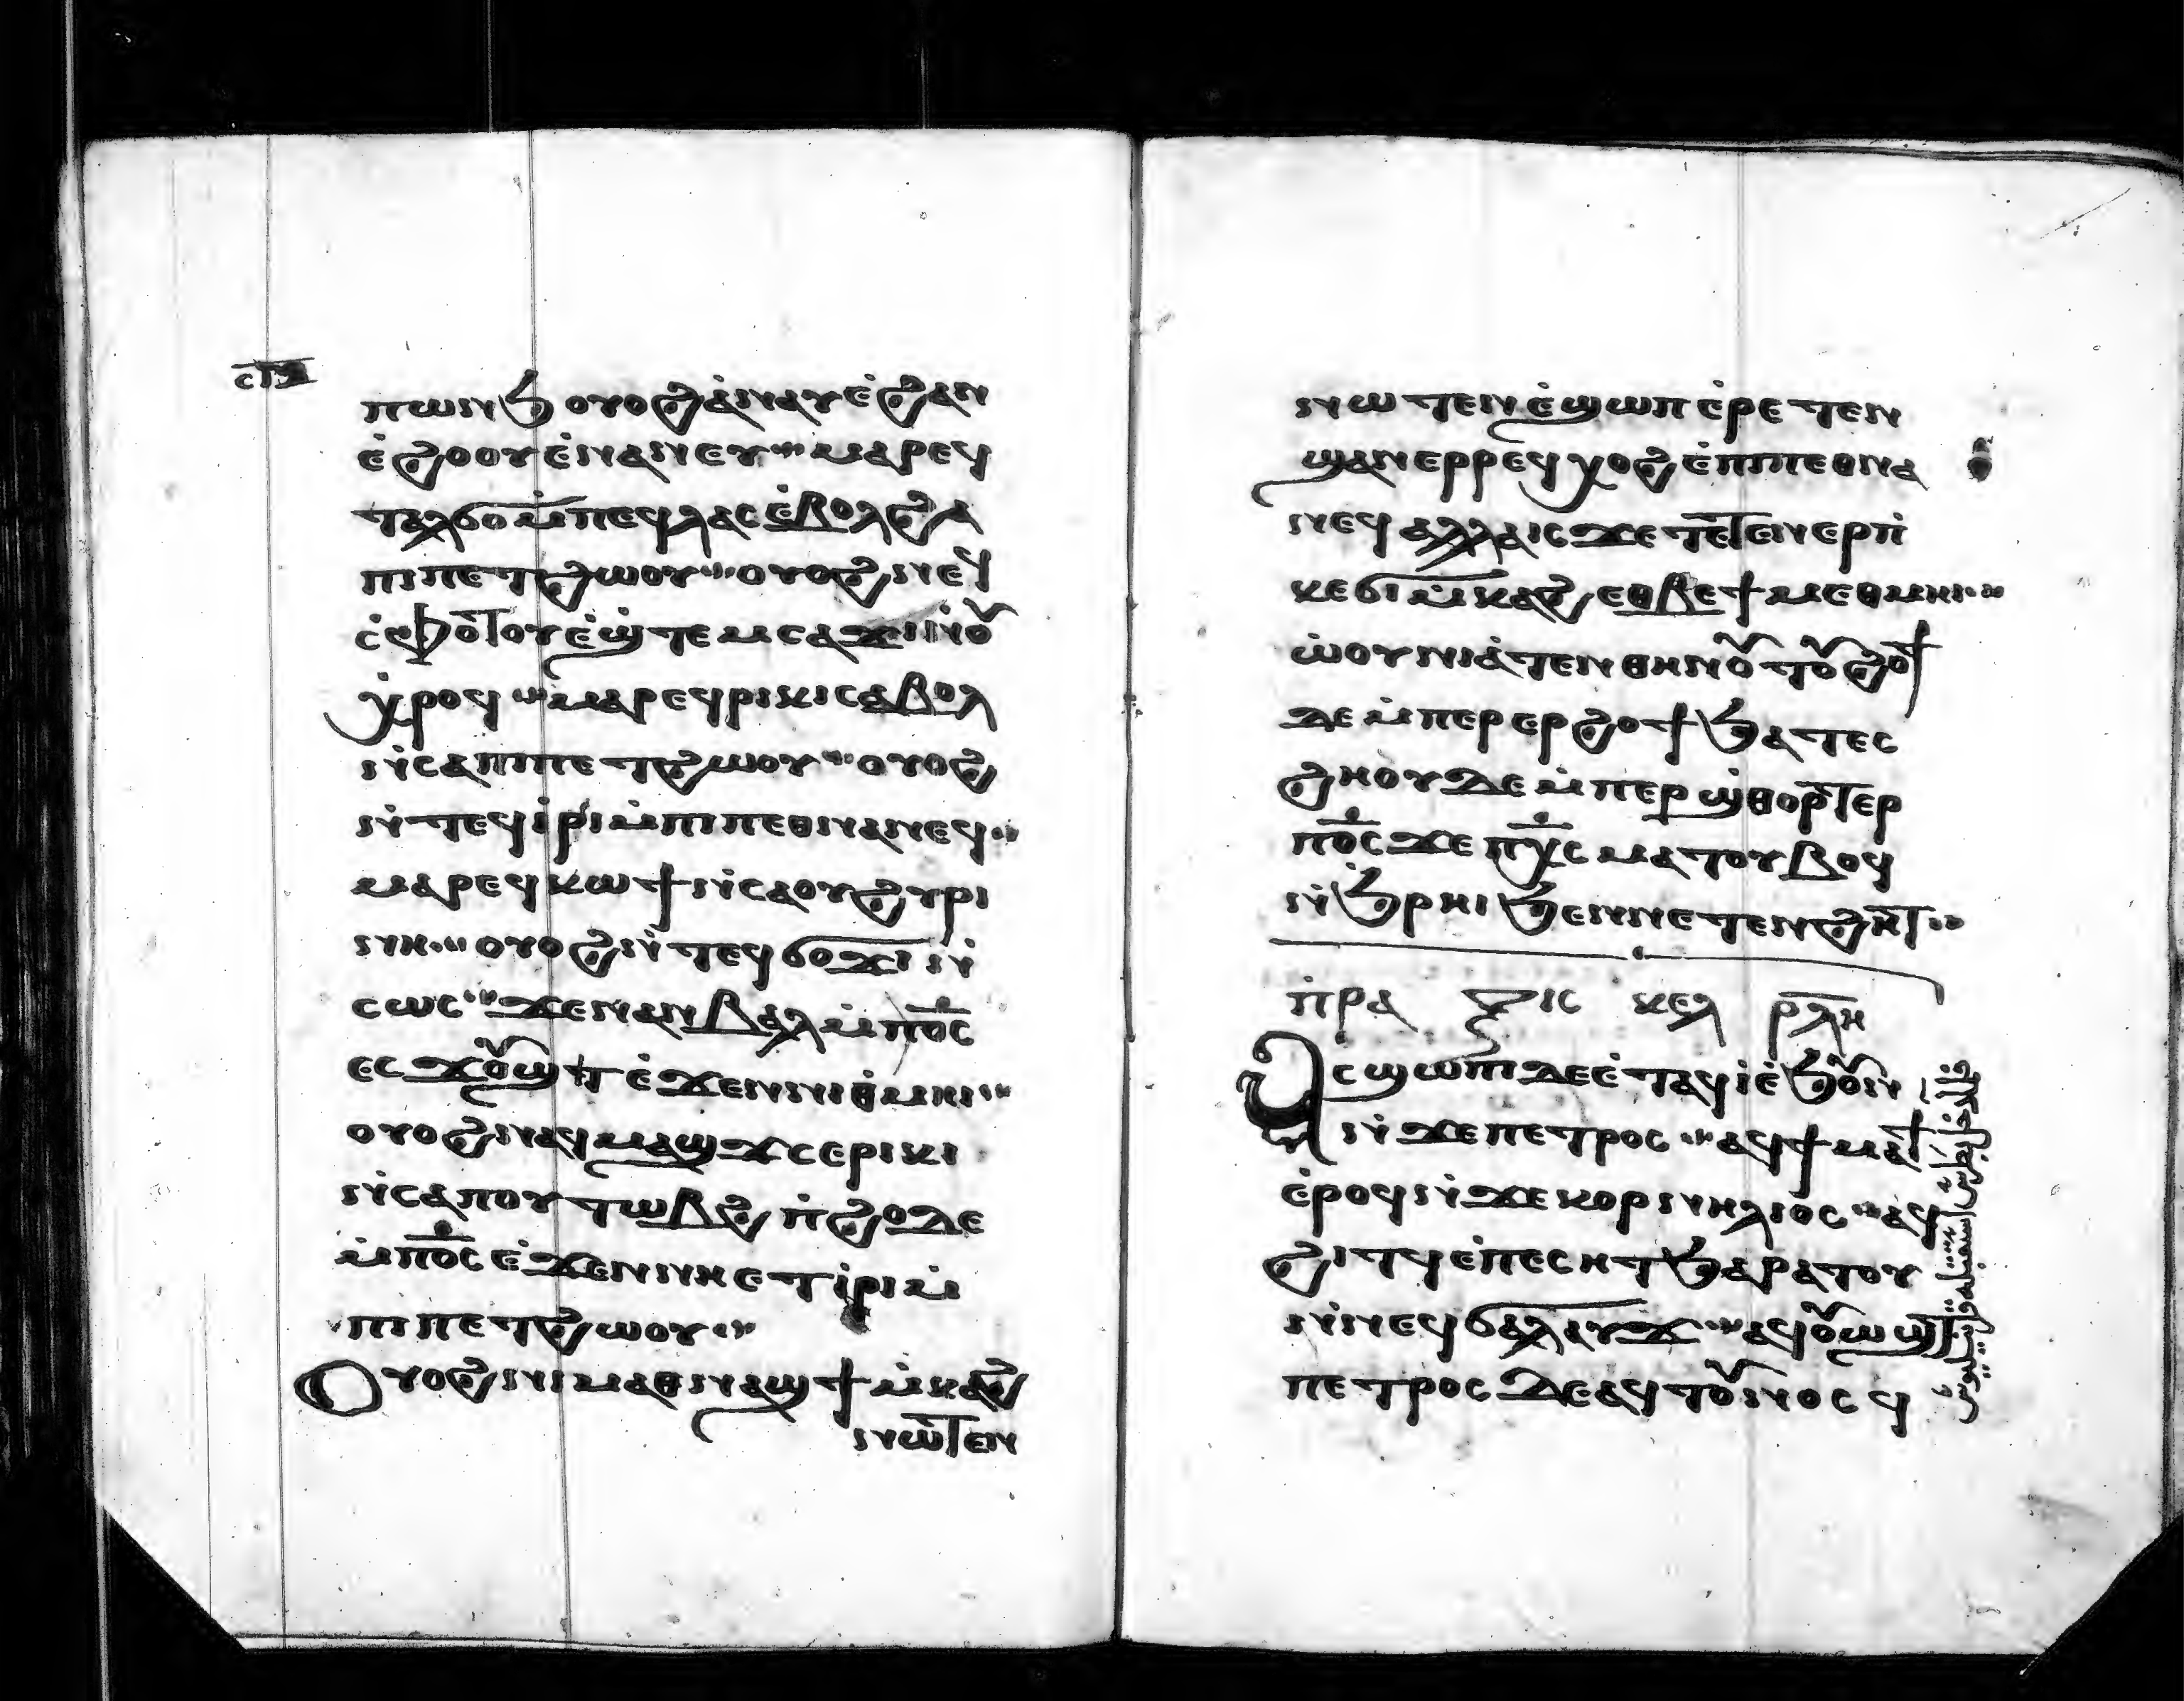 ⲡⲱⲛϧ ⲟⲩⲟϩ ⲁ̇ⲛⲁⲩ ⲉ̇ϩⲁⲛ
ⲉ̇ϩⲟⲟⲩ ⲉ̇ⲛⲁⲛⲉⲩ ⲙⲁⲣⲉϥ
ⲧⲁⲗϭⲟ ⲙ̇ⲡⲉϥⲗⲁⲥ ⲉ̇ⲃⲟⲗϩⲁ
ⲡⲓⲡⲉⲧϩⲱⲟⲩ ⲟⲩⲟϩ ⲛⲉϥ
ⲥ̇ⲫⲟⲧⲟⲩ ⲉ̇ϣⲧⲉⲙⲥⲁϫⲓ ⲛ̇ⲟⲩ
ⲭ̇ⲣⲟϥ ⲙⲁⲣⲉϥⲣⲓⲕⲓ ⲥⲁⲃⲟⲗ
ⲛ̇ⲥⲁⲡⲓⲡⲉⲧϩⲱⲟⲩ ⲟⲩⲟϩ
ⲛ̇ⲧⲉϥⲓ̇ⲣⲓ ⲙ̇ⲡⲓⲡⲉⲑⲛⲁⲛⲉϥ
ⲙⲁⲣⲉϥⲕⲱϯ ⲛ̇ⲥⲁⲟⲩϩⲩⲣⲓ
ⲛⲏ ⲟⲩⲟϩ ⲛ̇ⲧⲉϥϭⲟϫⲓ ⲛ̇
ⲥⲱⲥ ϫⲉⲛⲁⲛⲃⲁⲗ ⲙ̇ⲡⲟ̅ⲥ
ⲉⲥϫⲟⲩϣⲧ ⲉ̇ϫⲉⲛⲛⲓⲑ̇ⲙⲏⲓ
ⲟⲩⲟϩ ⲛⲁϥⲙⲁϣϫ ⲥⲉⲣⲓⲕⲓ
ⲛ̇ⲥⲁⲡⲟⲩⲧⲱⲃϩ ⲡ̇ϩⲟ ⲇⲉ
ⲙ̇ⲡⲟ̅ⲥ ⲉ̇ϫⲉⲛⲛⲏ ⲉⲧⲓ̇ⲣⲓ ⲙ̇
ⲡⲓⲡⲉⲧϩⲱⲟⲩ
Ⲟⲩⲟϩ ⲛⲓⲙ ⲁⲑⲛⲁϣϯⲙ̇ⲕⲁϩ
ⲛⲱⲧⲉⲛ
ⲛⲱⲧⲉⲛ ⲉ̇ϣⲱⲡ ⲉ̇ⲣⲉⲧⲉⲛ
ϣⲁⲛⲉⲣⲣⲉϥⲭⲟϩ ⲉ̇ⲡⲓⲡⲉⲑⲛⲁ
ⲛⲉϥ ⲁⲗⲗⲁ ⲓⲥϫⲉ ⲧⲉⲧⲉⲛⲉⲣⲡ̇
ⲕⲉϭⲓⲙ̇ⲕⲁϩ ⲉⲑⲃⲉϯⲙⲉⲑⲙⲏⲓ
ⲱ̇ⲟⲩⲛⲓⲁ̇ⲧⲉⲛⲑⲏⲛⲟⲩ ⲧⲟⲩϩⲟϯ
ⲇⲉ ⲙ̇ⲡⲉⲣⲉⲣϩⲟϯ ϧⲁⲧⲉⲥ
ϩⲏ ⲟⲩⲇⲉ ⲙ̇ⲡⲉⲣϣ̇ⲑⲟⲣⲧⲉⲣ
ⲡⲟ̅ⲥ ϫⲉ ⲡⲭ̅ⲥ ⲙⲁⲧⲟⲩⲃⲟϥ
ⲛ̇ϧⲣⲏⲓ ϧⲉⲛⲛⲉⲧⲉⲛϩⲏⲧ
ⲡ̇ⲣⲁⲝⲓⲥ ⲕⲉⲗ ⲣⲗⲏ
Ⲁⲥϣⲱⲡⲓ ⲇⲉ ⲉ̇ⲧⲁϥⲓ̇ ⲉ̇ϧⲟⲩⲛ
ⲛ̇ϫⲉ ⲡⲉⲧⲣⲟⲥ ⲁϥϯⲙⲁϯ
ⲉ̇ⲣⲟϥ ⲛ̇ϫⲉ ⲕⲟⲣⲛⲏⲗⲓⲟⲥ ⲁϥ
ϩⲓⲧϥ ⲉ̇ⲡⲉⲥⲏⲧ ϧⲁⲣⲁⲧⲟⲩ
ⲛ̇ⲛⲉϥϭⲁⲗⲁⲩϫ ⲁϥⲟⲩⲱϣⲧ
ⲡⲉⲧⲣⲟⲥ ⲇⲉ ⲁϥⲧⲟⲩⲛⲟⲥϥ